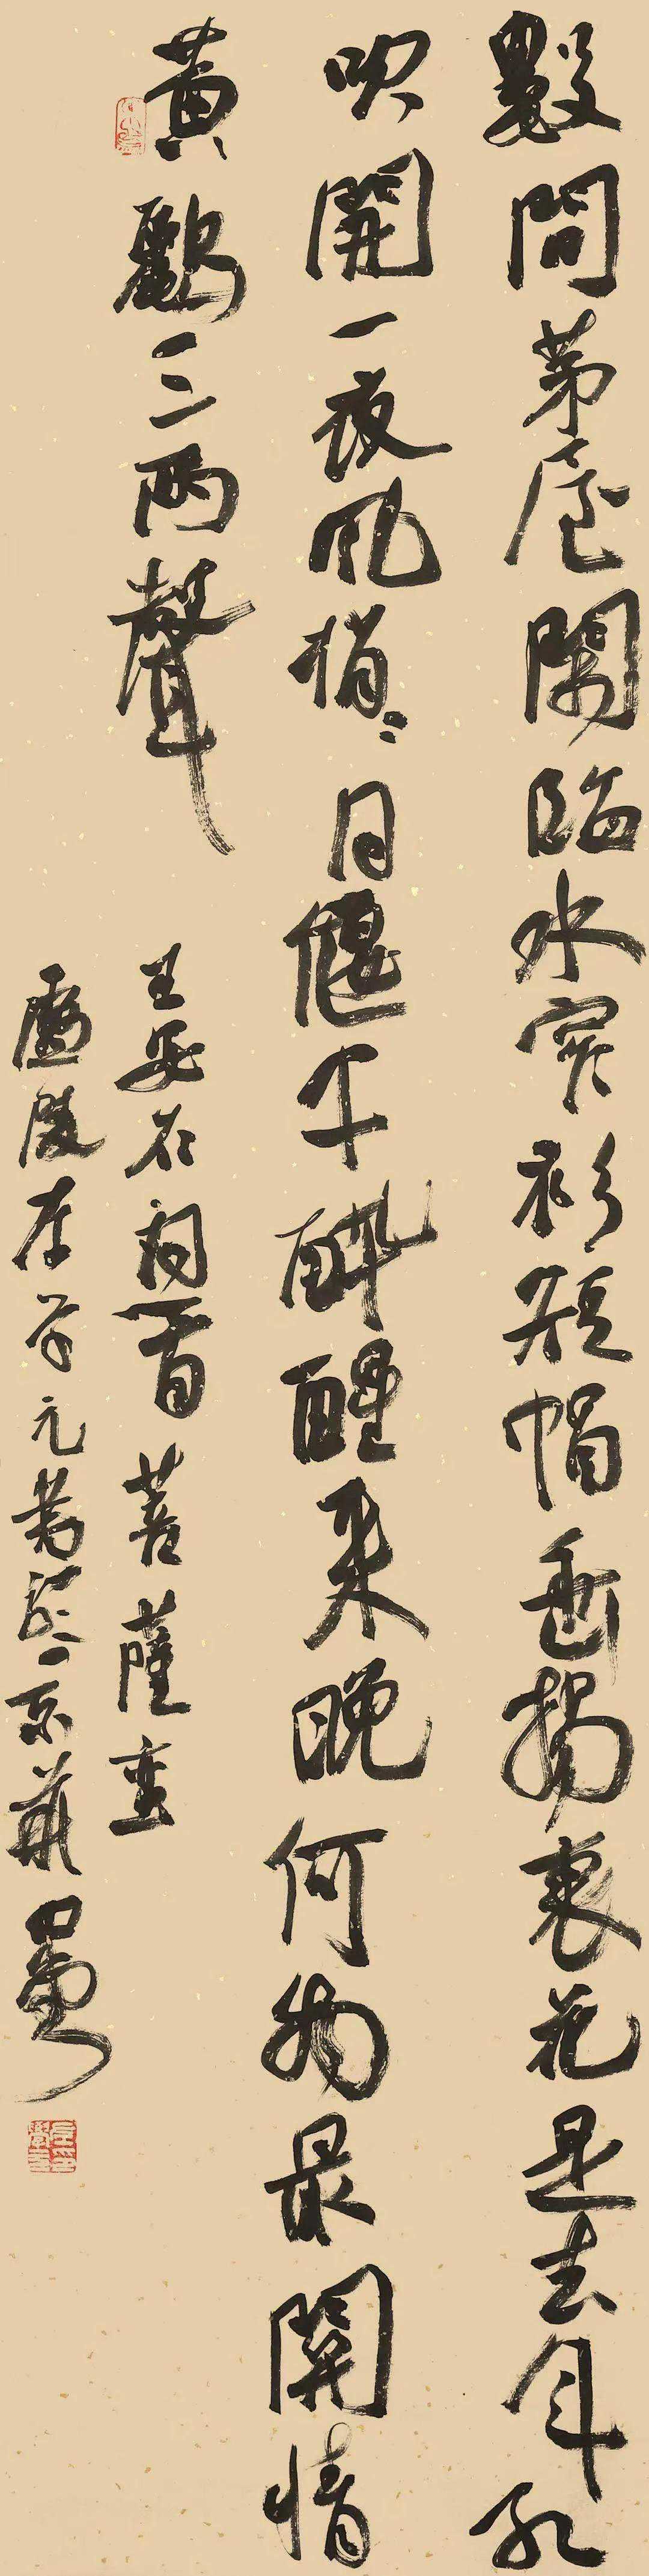 數間茅屋閑臨水窄衫短帽垂楊裏花是去年紅
吹開一夜風梢〻月偃午醉醒來晚何物最關情
黃鸝三兩聲
王安石詞一首菩薩蠻
廬陵 學元書於京華